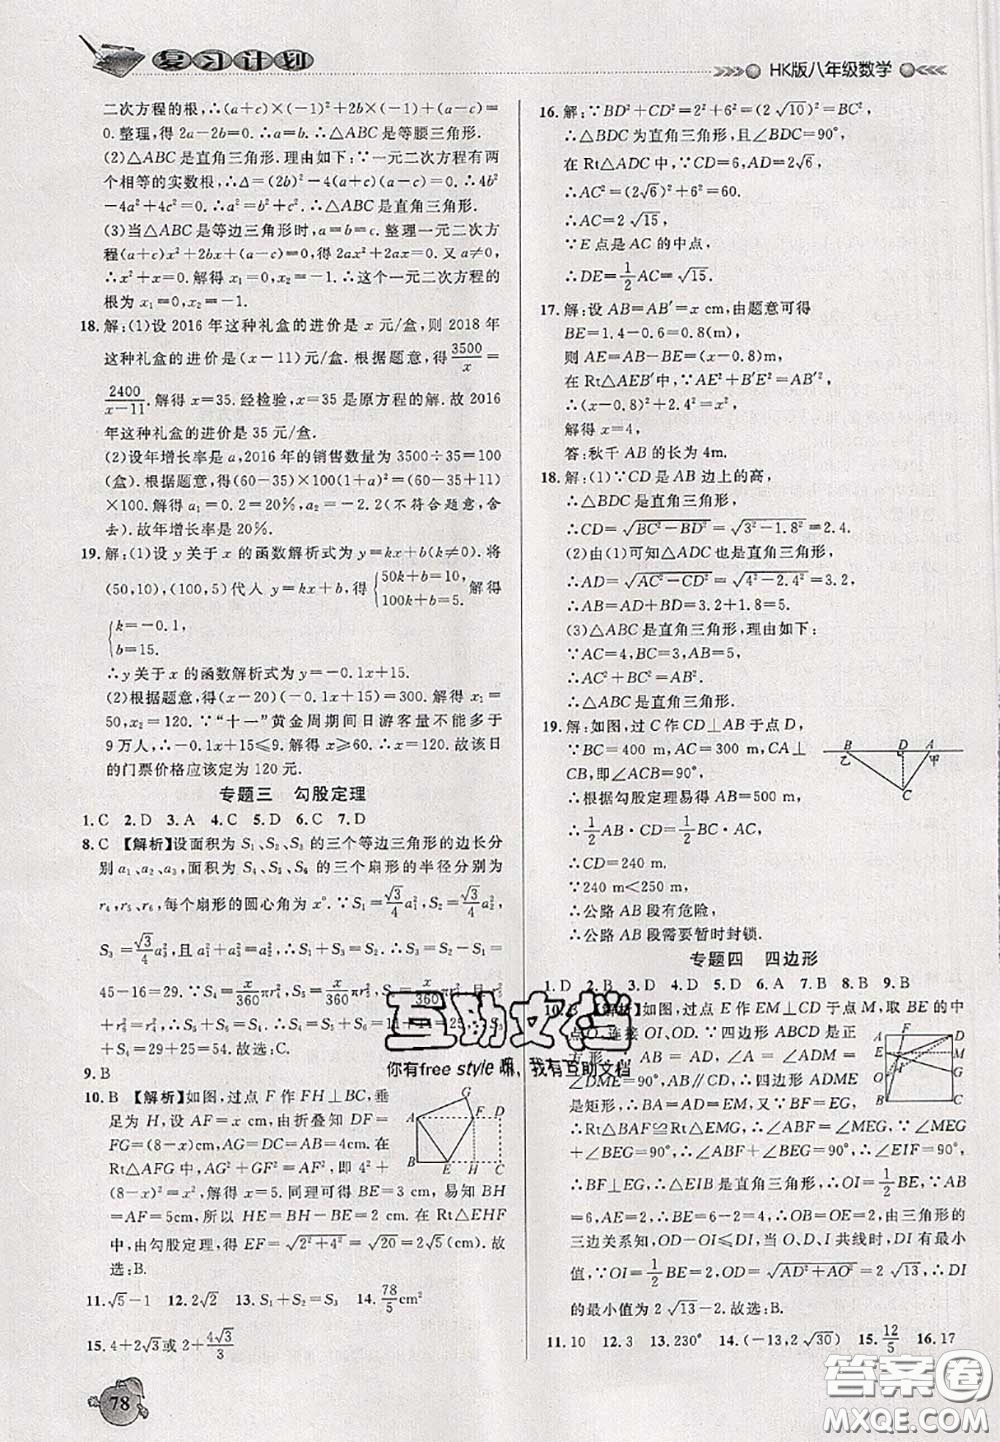 复习计划
HK版八年级数学
二次方程的根,∴(a+c)×(-1)²+2b×(-1)+(a-c)=
0.整理,得2a-2b=0.∴a=b.∴△ABC是等腰三角形.
(2)△ABC是直角三角形.理由如下:∵一元二次方程有两
个相等的实数根,∴Δ=(2b)²-4(a+c)(a-c)=0.∴4b²
-4a²+4c²=0.∴a²=b²+c².∴△ABC是直角三角形.
(3)当△ABC是等边三角形时,a=b=c.整理一元二次方
程(a+c)x²+2bx+(a-c)=0,得2ax²+2ax=0.又a≠0,
∴x²+x=0.解得x₁=0,x₂=-1.∴这个一元二次方程的
根为x₁=0,x₂=-1.
18.解:(1)设2016年这种礼盒的进价是x元/盒,则2018年
这种礼盒的进价是(x-11)元/盒.根据题意,得3500/x=
2400/(x-11).解得x=35.经检验,x=35是原方程的解.故2016
年这种礼盒的进价是35元/盒.
(2)设年增长率是a,2016年的销售数量为3500÷35=100
(盒).根据题意,得(60-35)×100(1+a)²=(60-35+11)
×100.解得a₁=0.2=20%,a₂=-2.2(不符合题意,舍
去).故年增长率是20%.
19.解:(1)设y关于x的函数解析式为y=kx+b(k≠0).将
(50,10),(100,5)代入y=kx+b,得{50k+b=10,100k+b=5.解得
{k=-0.1,
b=15.
∴y关于x的函数解析式为y=-0.1x+15.
(2)根据题意,得(x-20)(-0.1x+15)=300.解得x₁=
50,x₂=120.∵“十一”黄金周期间日游客量不能多于
9万人,∴-0.1x+15≤9.解得x≥60.∴x=120.故该日
的门票价格应该定为120元.
专题三 勾股定理
1.C 2.D 3.A 4.C 5.D 6.C 7.D
8.C 【解析】设面积为S₁、S₂、S₃的三个等边三角形的边长分
别a₁、a₂、a₃,面积为S₄、S₅、S₆的三个扇形的半径分别为
r₄,r₅,r₆,每个扇形的圆心角为x°.∵S₁=√3/4a₁²,S₂=√3/4a₂²,
S₃=√3/4a₃²,a₁²+a₂²=a₃²,∴S₁+S₃=S₂.∴S₃=S₂-S₁=
45-16=29.∵S₄=x/360πr₄²,S₅=x/360πr₅²,S₆=x/360πr₆²,且r₄²
+r₅²=r₆²,∴S₄+S₅=S₆.∴S₆=11+14=25.∴S₃
+S₄=29+25=54.故选:C.
9.B
10.B 【解析】如图,过点F作FH⊥BC,垂
足为H,设AF=x cm,由折叠知DF=
FG=(8-x)cm,AG=DC=AB=4cm.在
Rt△AFG中,AG²+GF²=AF²,即4²+
(8-x)²=x²,解得x=5.同理可得BE=3 cm,易知BH
=AF=5cm,所以HE=BH-BE=2 cm.在Rt△EHF
中,由勾股定理,得EF=√(2²+4²)=√20=2√5(cm).故
选:B.
G
A F D
B E H C
11.√5-1 12.2√2 13.S₁+S₂=S₃ 14.78/5cm²
15.4+2√3或2+4√3/3
78
16.解:∵BD²+CD²=2²+6²=(2√10)²=BC²,
∴△BDC为直角三角形,且∠BDC=90°,
在Rt△ADC中,∵CD=6,AD=2√6,
∴AC²=(2√6)²+6²=60.
∴AC=2√15,
∵E点是AC的中点,
∴DE=1/2AC=√15.
17.解:设AB=AB′=x cm,由题意可得
BE=1.4-0.6=0.8(m),
则AE=AB-BE=(x-0.8)m,
在Rt△AEB′中,∵AE²+B′E²=AB′²,
∴(x-0.8)²+2.4²=x²,
解得x=4,
答:秋千AB的长为4m.
18.解:(1)∵CD是AB边上的高,
∴△BDC是直角三角形,
∴CD=√(BC²-BD²)=√(3²-1.8²)=2.4.
(2)由(1)可知△ADC也是直角三角形,
∴AD=√(AC²-CD²)=√(4²-2.4²)=3.2,
∴AB=AD+BD=3.2+1.8=5.
(3)△ABC是直角三角形,理由如下:
∵AC=4,BC=3,AB=5,
∴AC²+BC²=AB².
∴△ABC是直角三角形.
19.解:如图,过C作CD⊥AB于点D,
∵BC=400 m,AC=300 m,CA⊥
CB,即∠ACB=90°,
∴根据勾股定理易得AB=500 m,
∴1/2AB·CD=1/2BC·AC,
∴CD=240 m.
∵240 m<250 m,
∴公路AB段有危险,
∴公路AB段需要暂时封锁.
B D A
乙 甲
C
专题四 四边形
1.D 2.B 3.D 4.A 5.A 6.A 7.B 8.B 9.B
10.B 【解析】如图,过点E作EM⊥CD于点M,取BE的中
点O,连接OI、OD.∵四边形ABCD是正
∠DME=90°,∴四边形ADME
是矩形,∴BA=AD=EM,∵BF=EG,
∴Rt△BAF≌Rt△EMG,∴∠ABF=∠MEG,∵∠MEG
+∠BEG=90°,∴∠ABF+∠BEG=90°,∴∠EIF=90°,
∴BF⊥EG,∴△EIB是直角三角形,∴OI=1/2BE,∵AB
=6,AE=2,∴BE=6-2=4,OB=OE=2,由三角形的
三边关系知,OD-OI≤DI,∴当O、D、I共线时,DI有最小
值,∵OI=1/2BE=2,∴OD=√(AD²+AO²)=2√13,∴DI
的最小值为2√13-2.故选:B.
D
M
C
11.10 12.3 13.230° 14.(-13,2√30) 15.12/5 16.17
互助文档
你有free style嘛,我有互助文档
答案圈
MXQE.COM